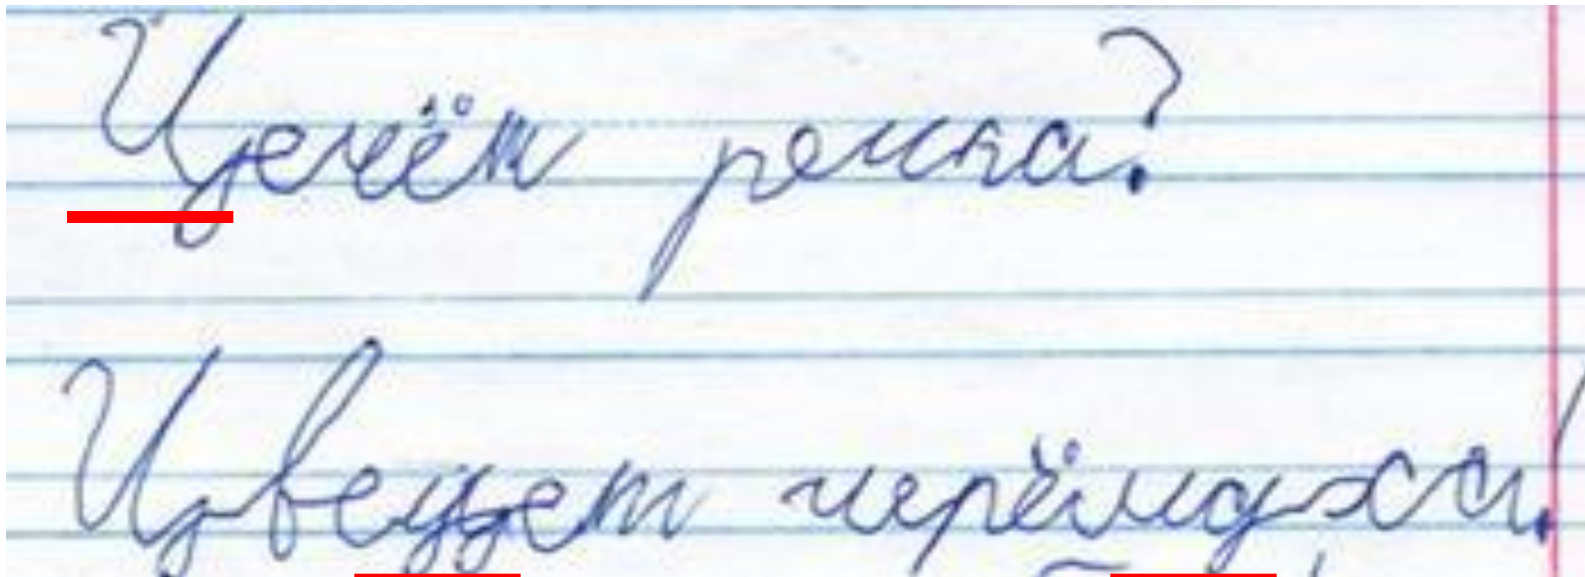 Цечёт река?
Цвецет черёмуха!